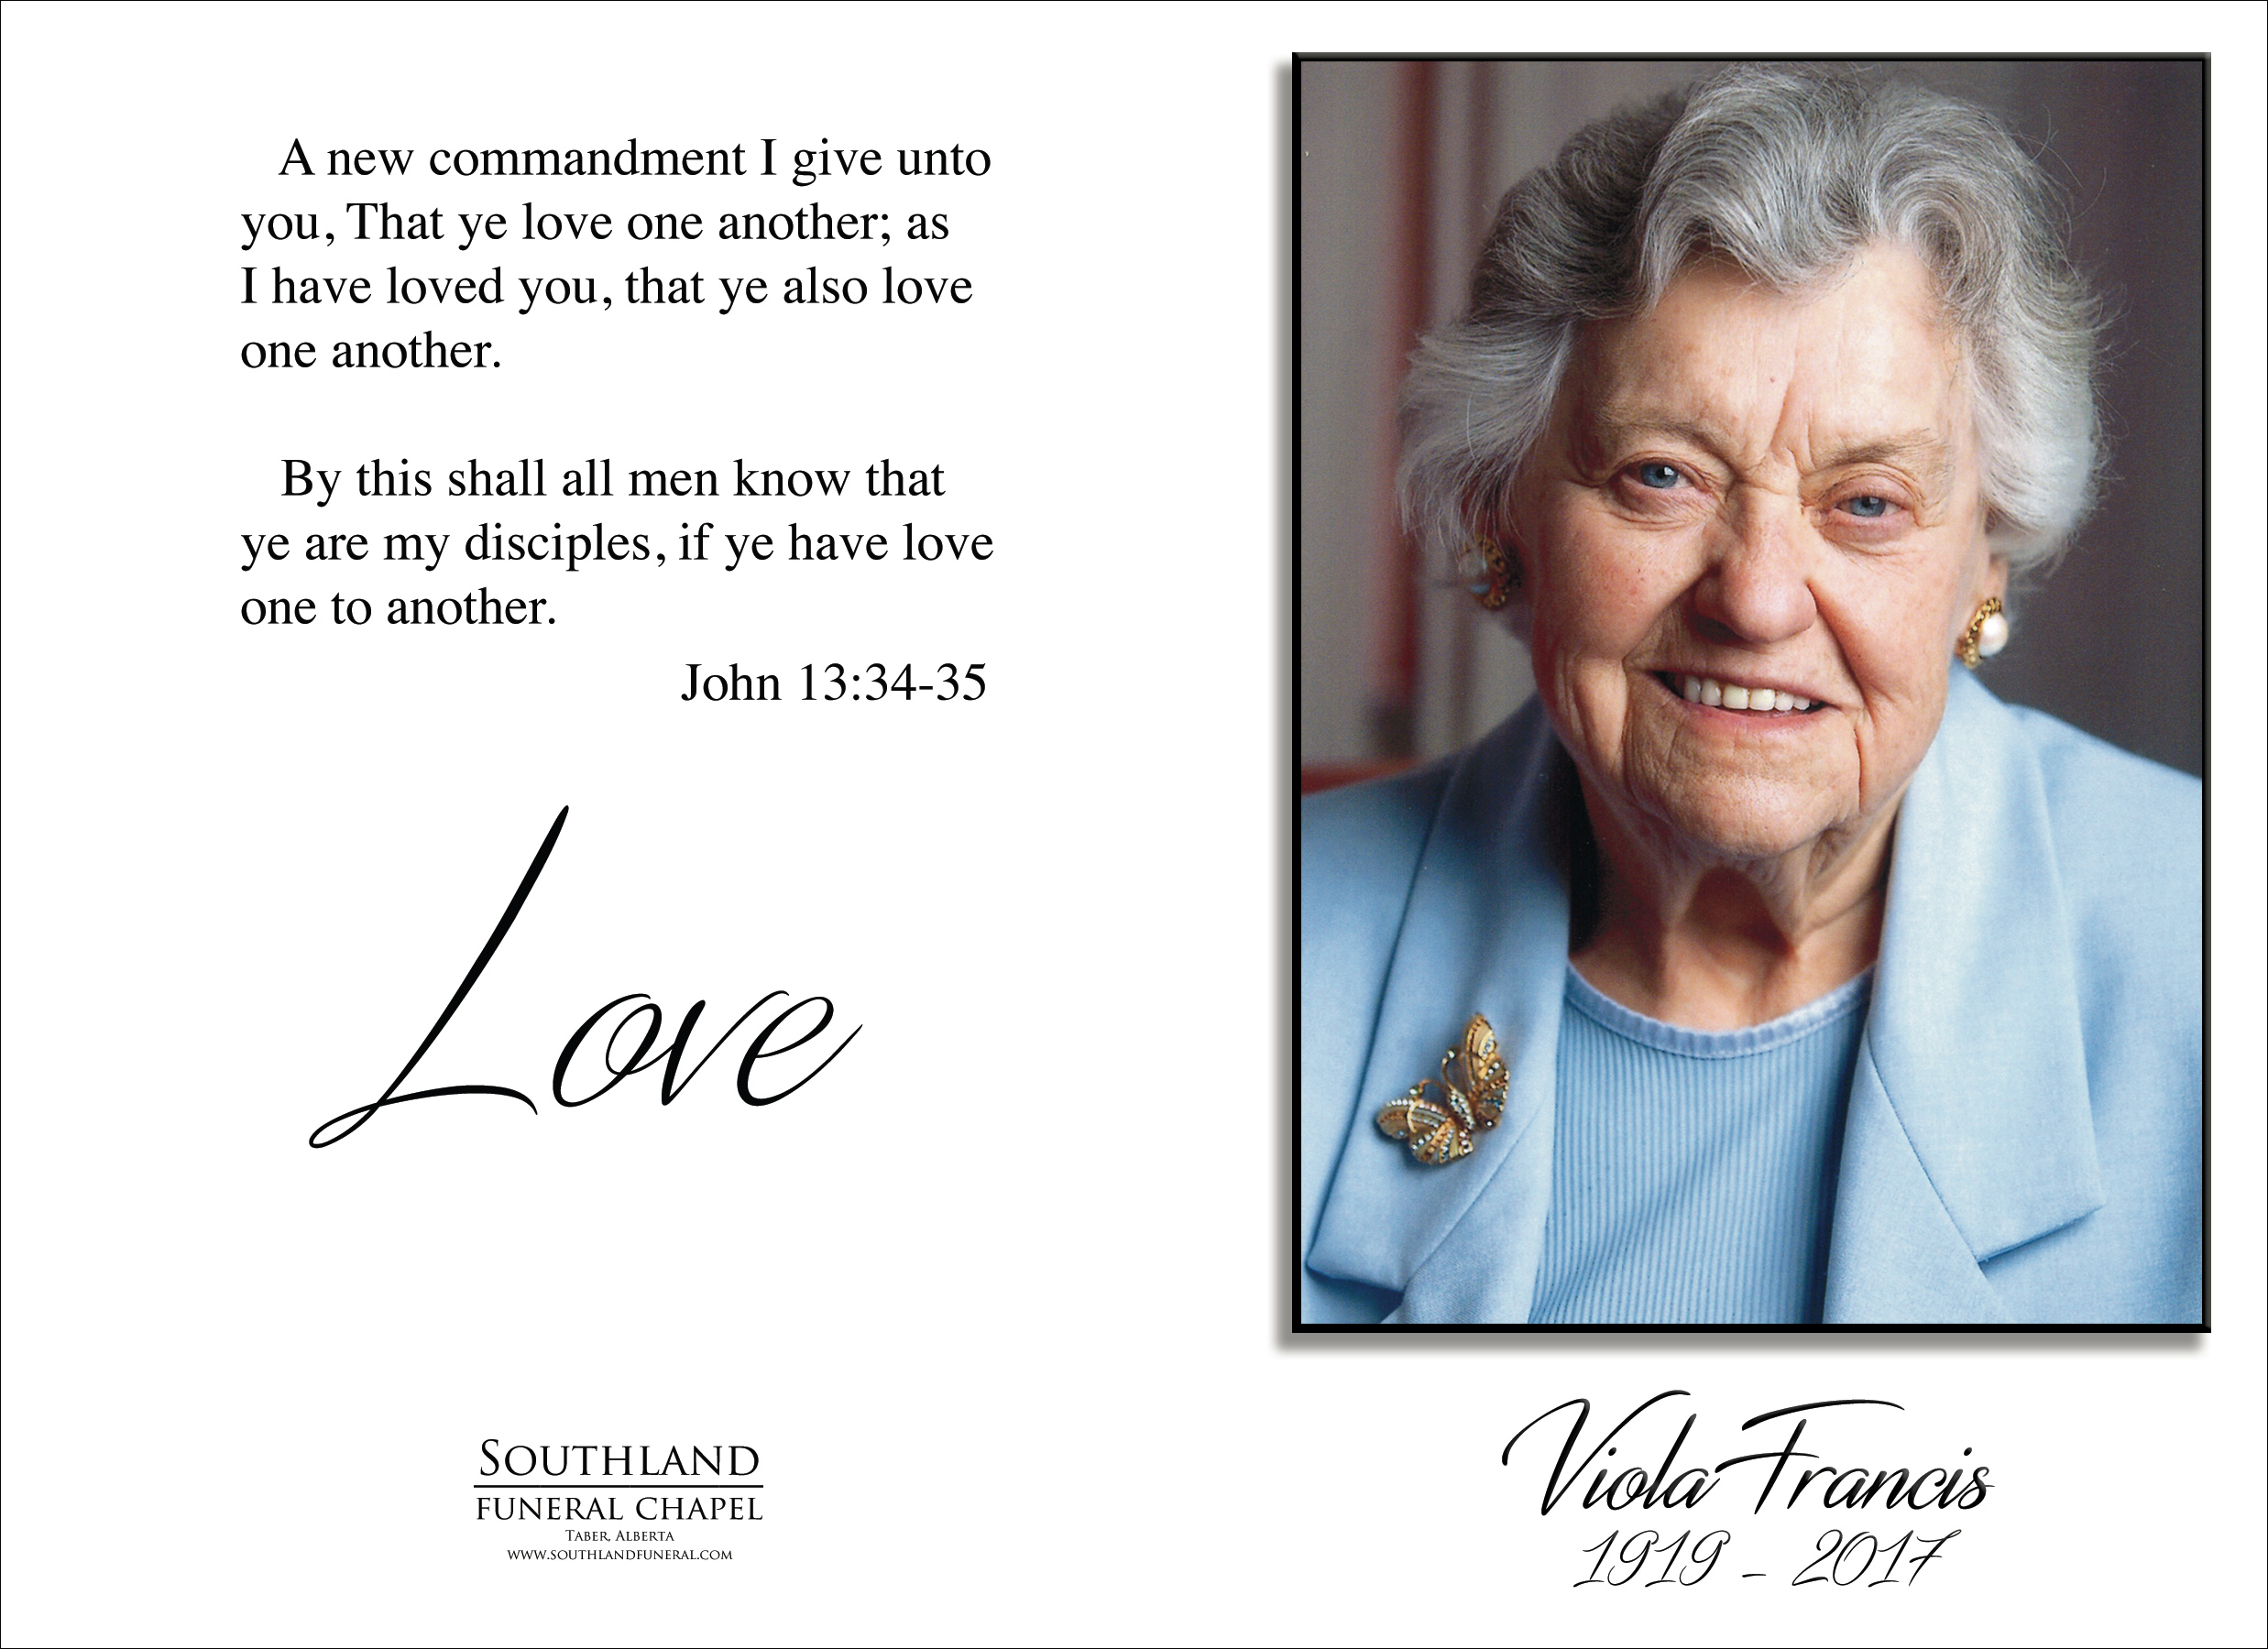 A new commandment I give unto
you, That ye love one another; as
I have loved you, that ye also love
one another.
By this shall all men know that
ye are my disciples, if ye have love
one to another.
John 13:34-35
Love
SOUTHLAND
FUNERAL CHAPEL
TABER, ALBERTA
WWW.SOUTHLANDFUNERAL.COM
Viola Francis
1919 - 2017